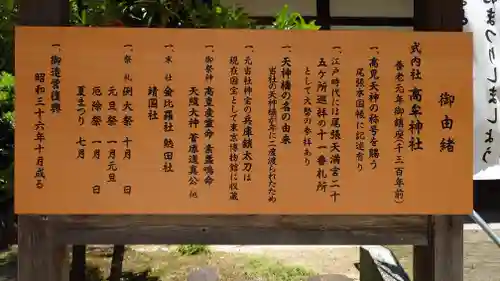 御由緒
式内社 高牟神社
養老元年御鎮座(千三百年前)
一、高見天神の称号を賜う
尾張本国帳に記述有り
一、江戸時代には尾張天満宮二十
五ヶ所巡拝の十一番札所
として大勢の参拝あり
一、天神橋の名の由来
当社の天神橋が年に二度渡られたため
一、元当社神宝の兵庫鎖太刀は
現在国宝として東京博物館に収蔵
一、御祭神 高皇産霊命 素盞嗚命
天穂大神 菅原道真公 他
一、末社 金比羅社 熱田社
靖国社
一、祭礼 例大祭 十月 日
元旦祭 一月元旦
厄除祭 一月 日
夏まつり 七月
一、御造営復興
昭和三十六年十月成る
しましょう